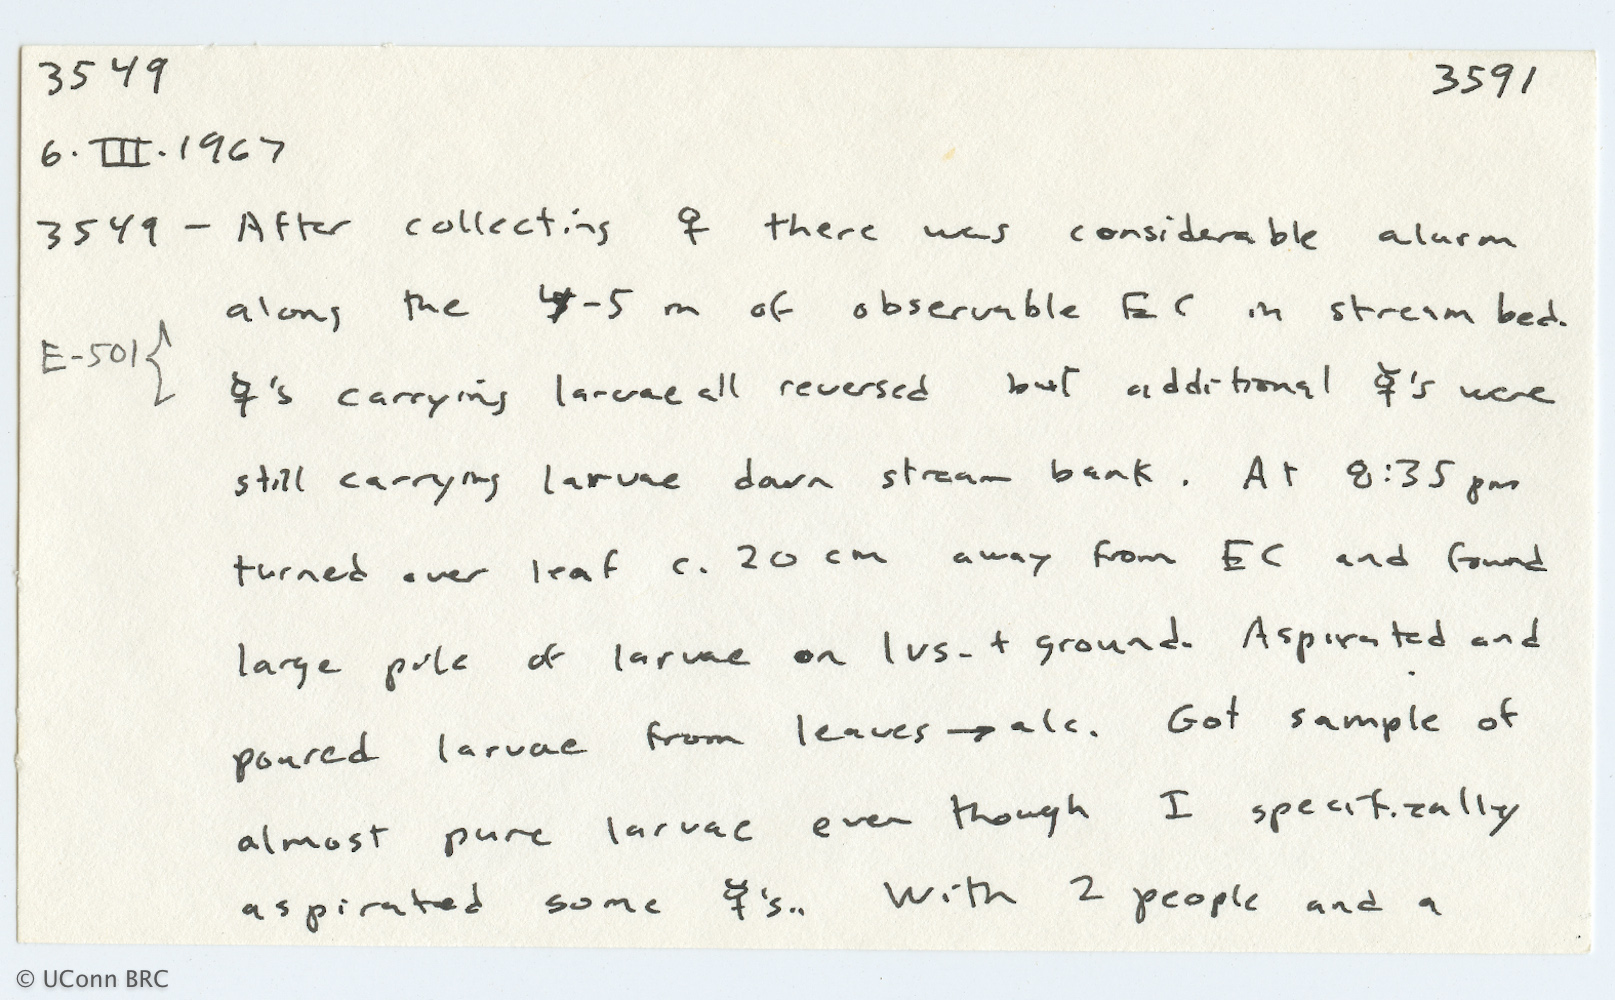 3549 3591
6.III.1967
3549 - After collecting ♀ there was considerable alarm
along the 4-5 m of observable EC in stream bed.
E-501{
☿'s carrying larvae all reversed but additional ☿'s were
still carrying larvae down stream bank. At 8:35 pm
turned over leaf c. 20 cm away from EC and found
large pile of larvae on lvs. + ground. Aspirated and
poured larvae from leaves → alc. Got sample of
almost pure larvae even though I specifically
aspirated some ☿'s.. With 2 people and a
© UConn BRC